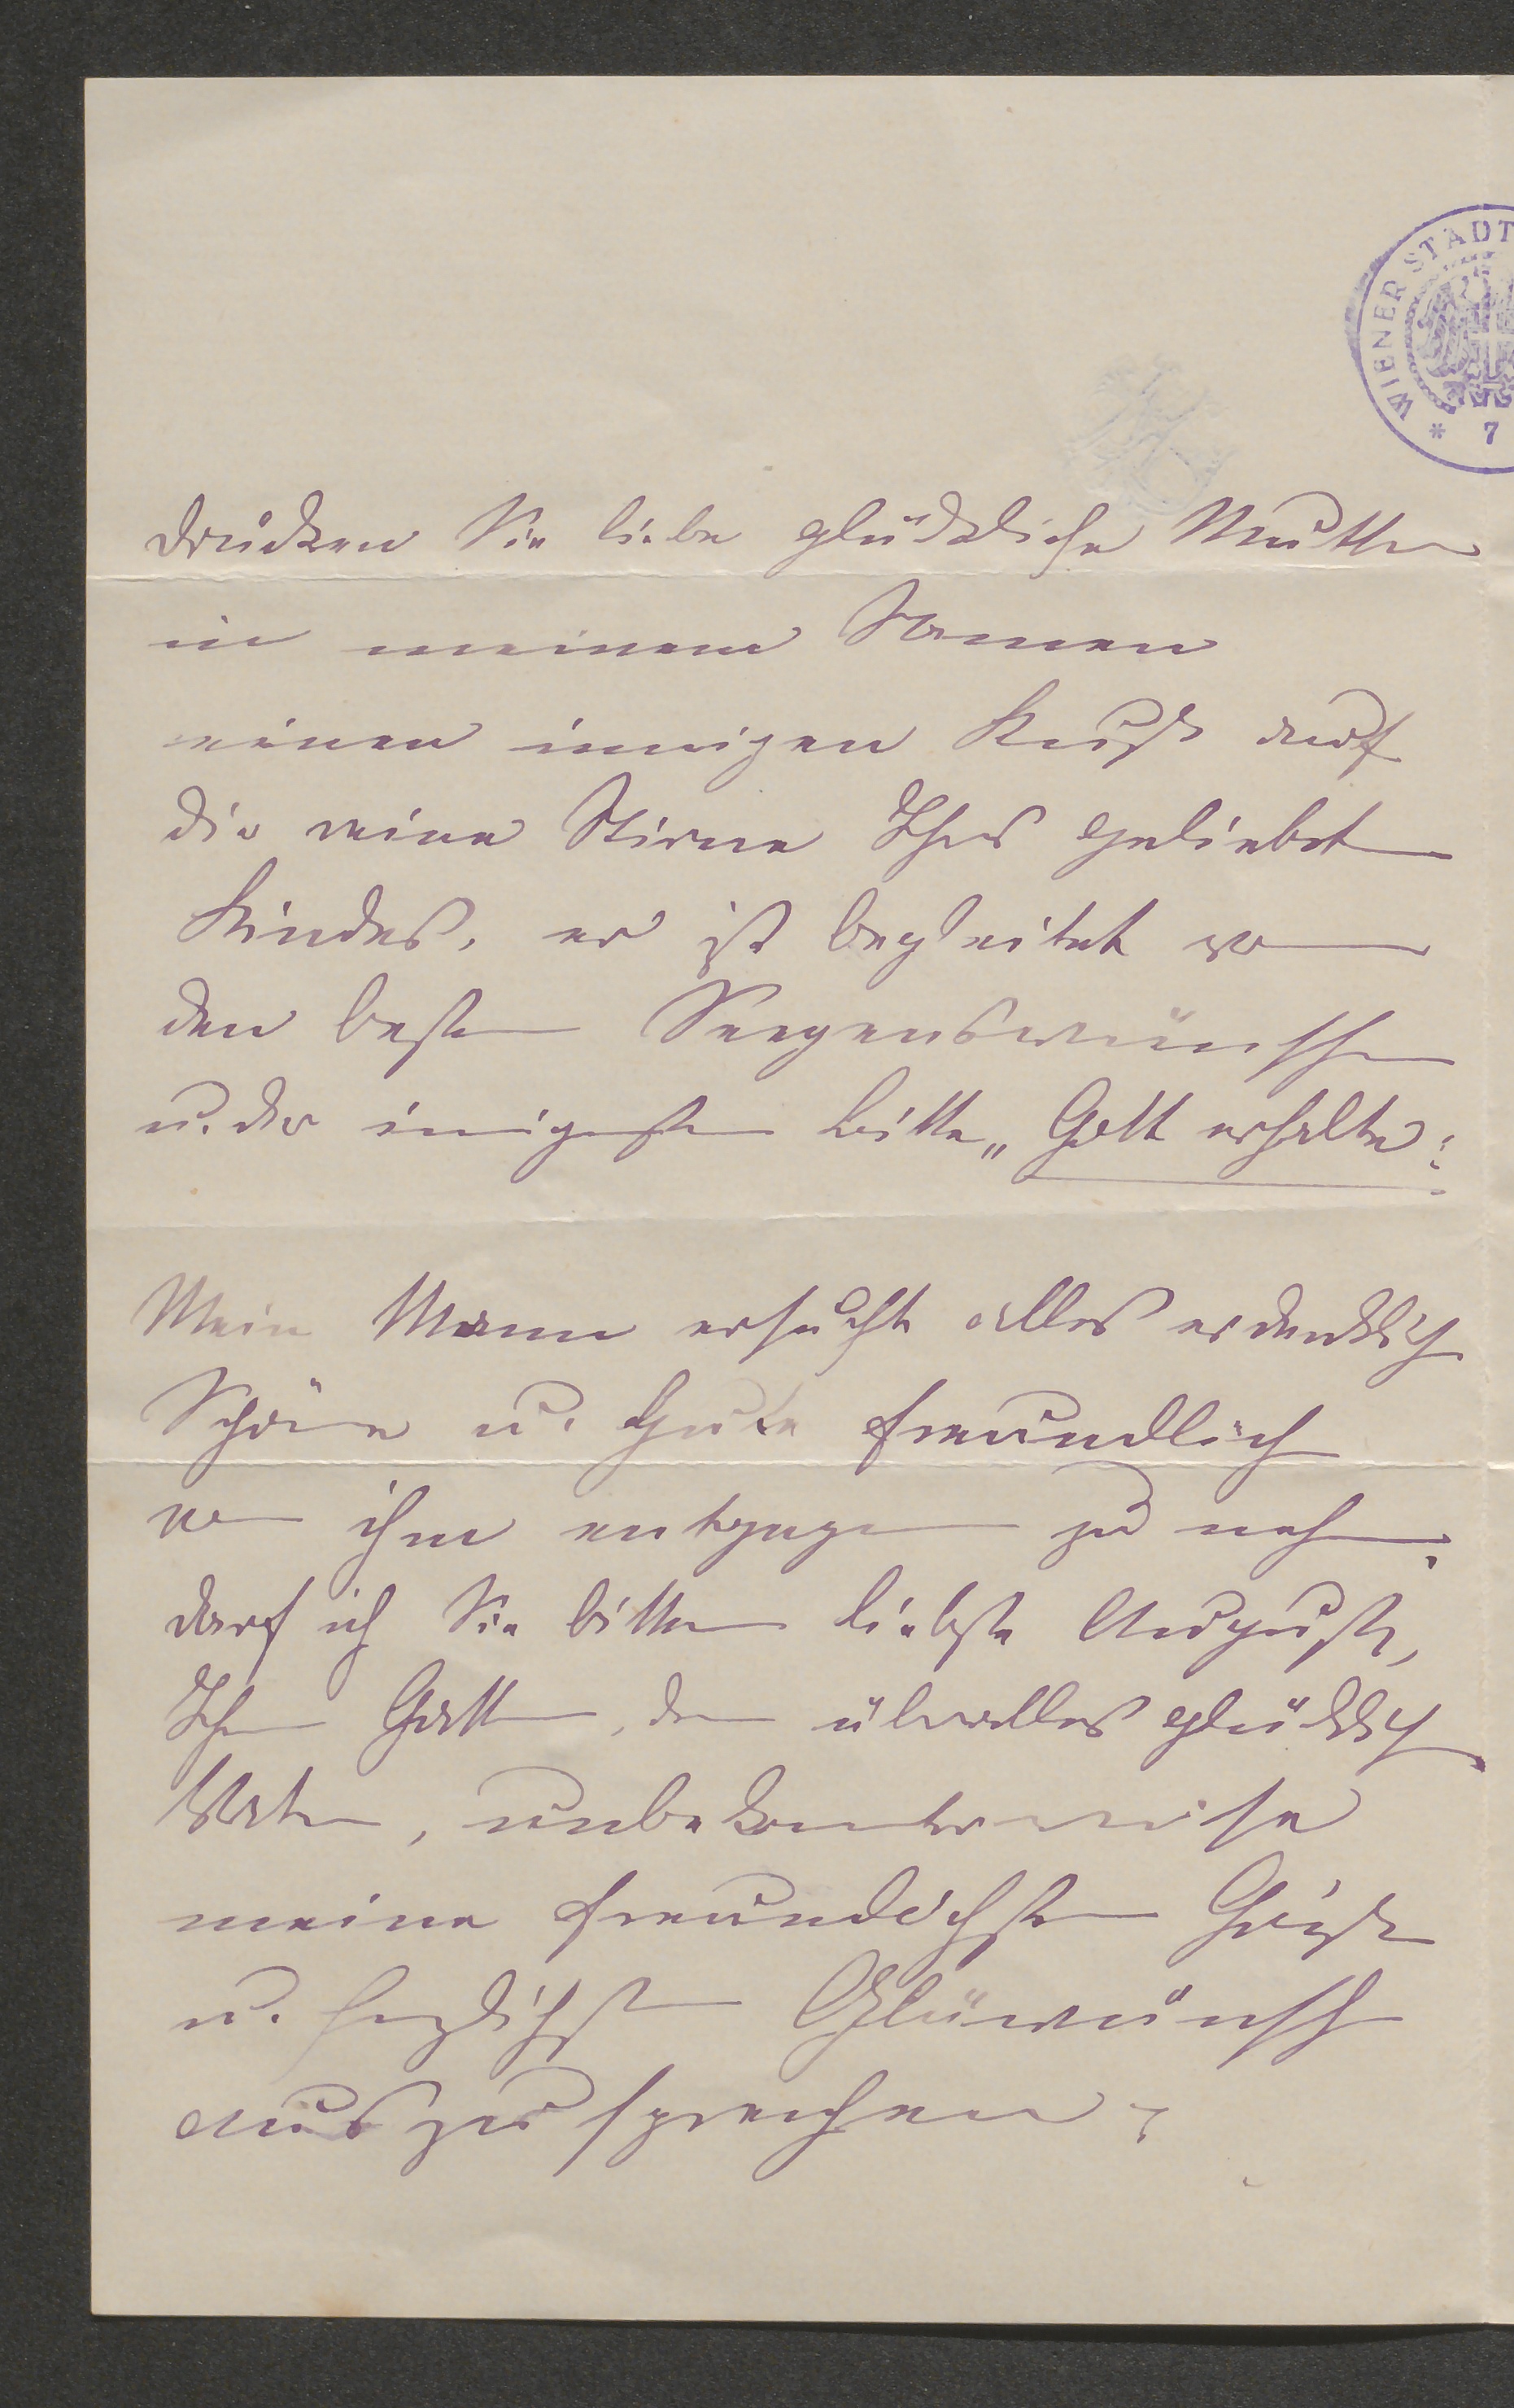 WIENER STADT
* 7
drücken Sie liebe glückliche Mutter
in meinem Namen
einen innigen Kuß auf
die reine Stirne Ihres geliebten
Kindes, er ist begleitet von
den besten Seegenswünschen
u. der innigsten Bitte „Gott erhalte!
Mein Mann ersucht alles erdenklich
Schöne u. Gute freundlich
von ihm entgegen zu nehmen.
darf ich Sie bitten liebste Auguste,
Ihren Gatten, den überalles glücklichen
Vater, unbekannterweise
meine freundlichsten Grüße
u. herzlichsten Glückwünsche
auszusprechen;